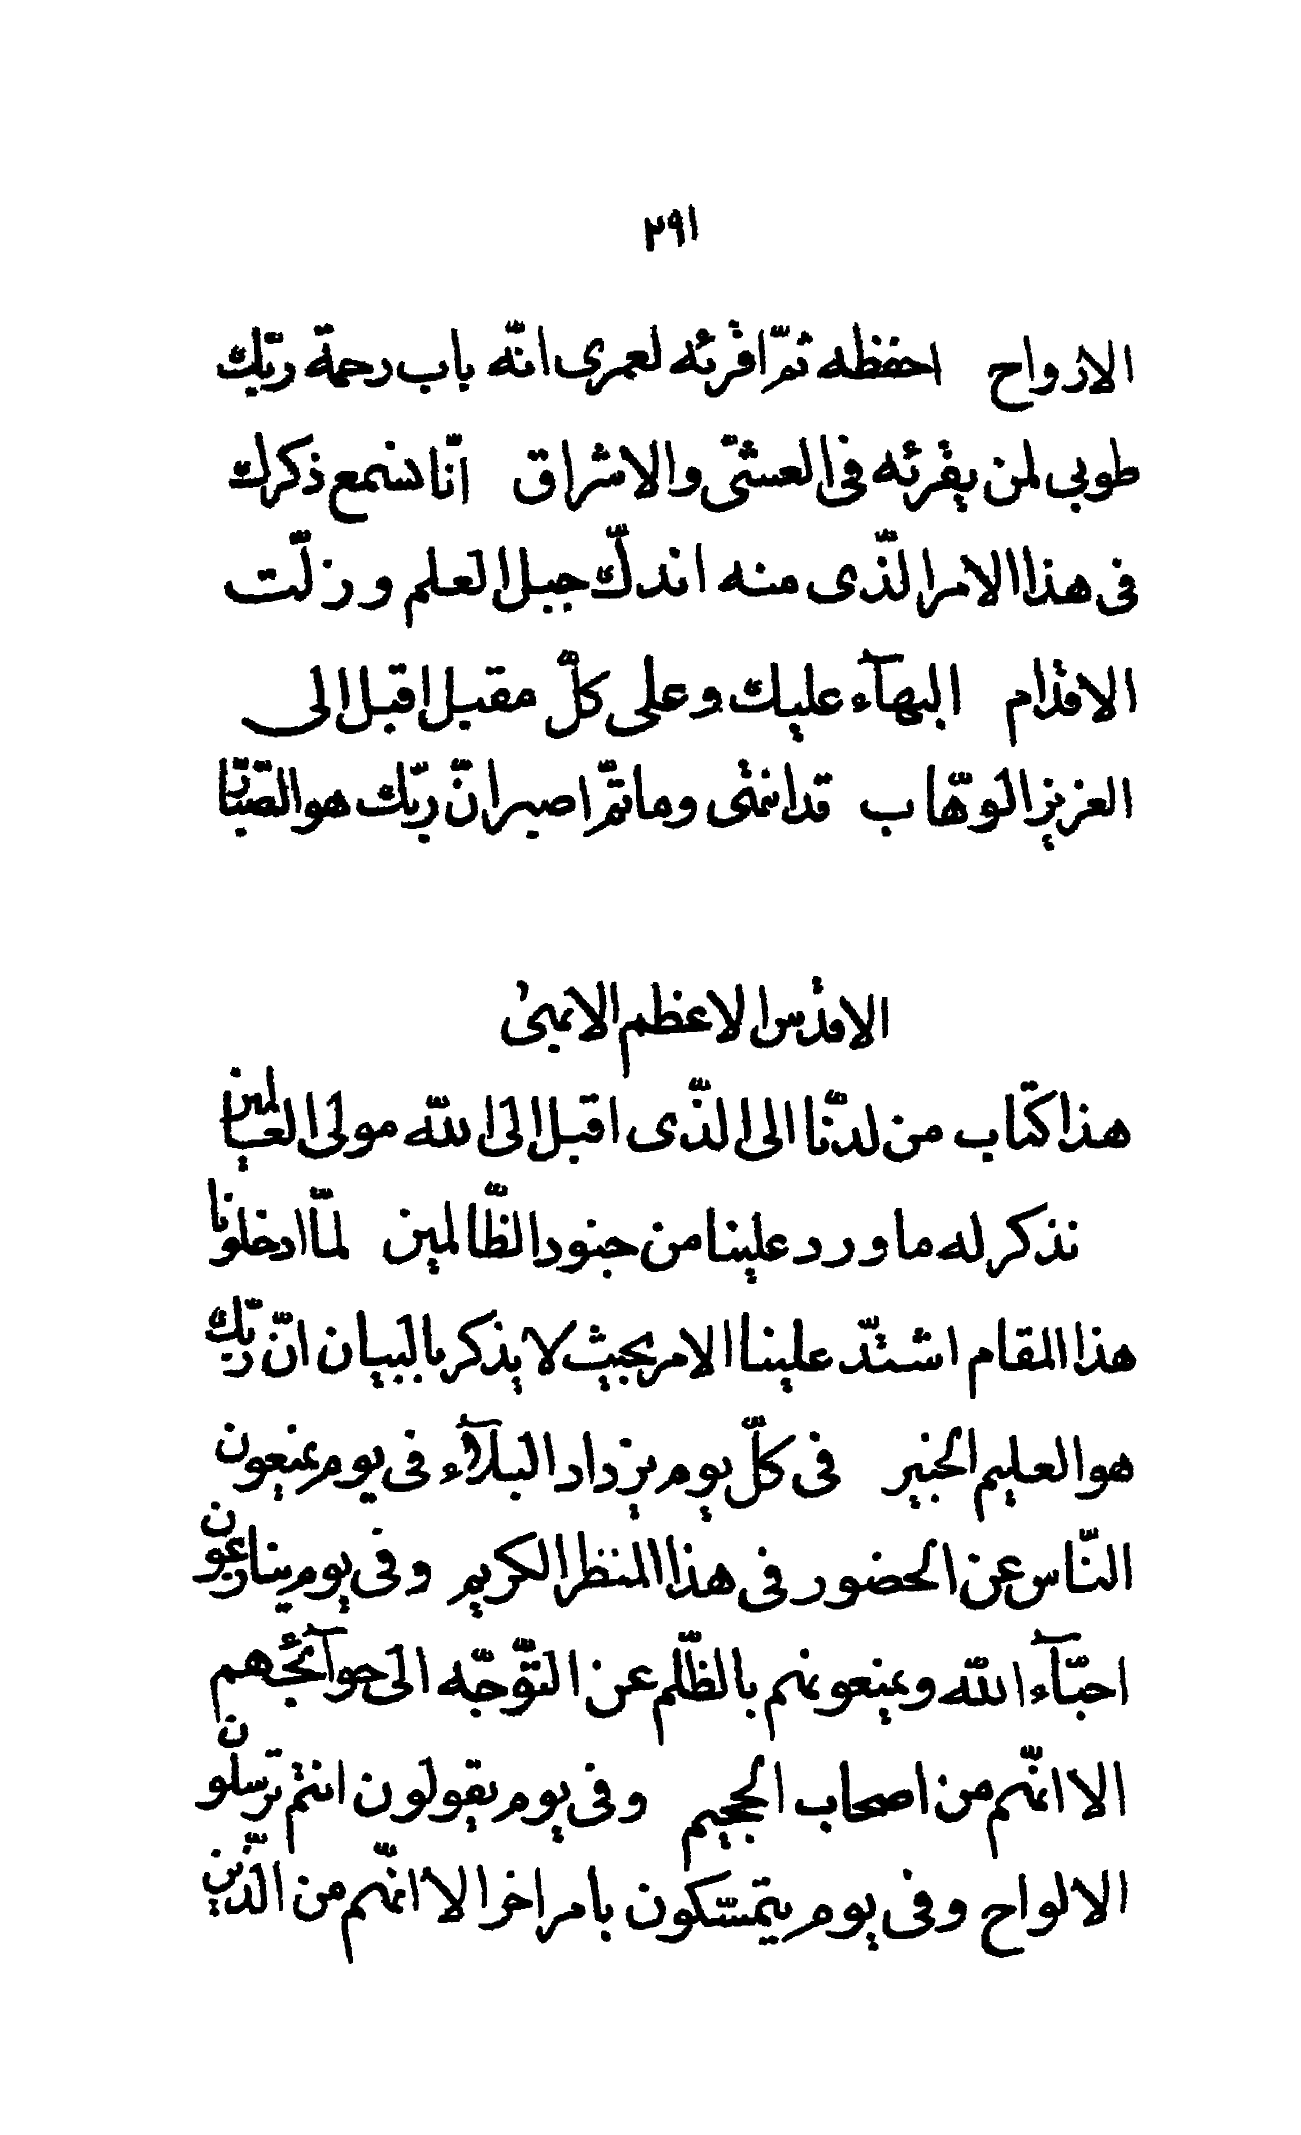 ٢٩١
الارواح احفظه ثمّ اقرئه لعمرى انّه باب رحمة ربّك
طوبى لمن يقرئه فى العشىّ والاشراق انّا نسمع ذكرك
فى هذا الامر الّذى منه اندكّ جبل العلم و زلّت
الاقدام البهآء عليك وعلى كلّ مقبل اقبل الى
العزيز الوهّاب قد انتهى وما تمّ اصبر انّ ربّك هو الصّبّار
الاقدس الاعظم الابهىٰ
هذا كتاب من لدنّا الى الّذى اقبل الى اللّه مولى العالمين
نذكر له ما ورد علينا من جنود الظّالمين لمّا ادخلونا
هذا المقام اشتدّ علينا الامر بحيث لا يذكر بالبيان انّ ربّك
هو العليم الخبير فى كلّ يوم يزداد البلآء فى يوم يمنعون
النّاس عن الحضور فى هذا المنظر الكريم وفى يوم ينازعون
احبّآء اللّه ويمنعونهم بالظّلم عن التّوجّه الى حوآئجهم
الا انّهم من اصحاب الجحيم وفى يوم يقولون انتم ترسلون
الالواح وفى يوم يتمسّكون بامر اخر الا انّهم من الّذين